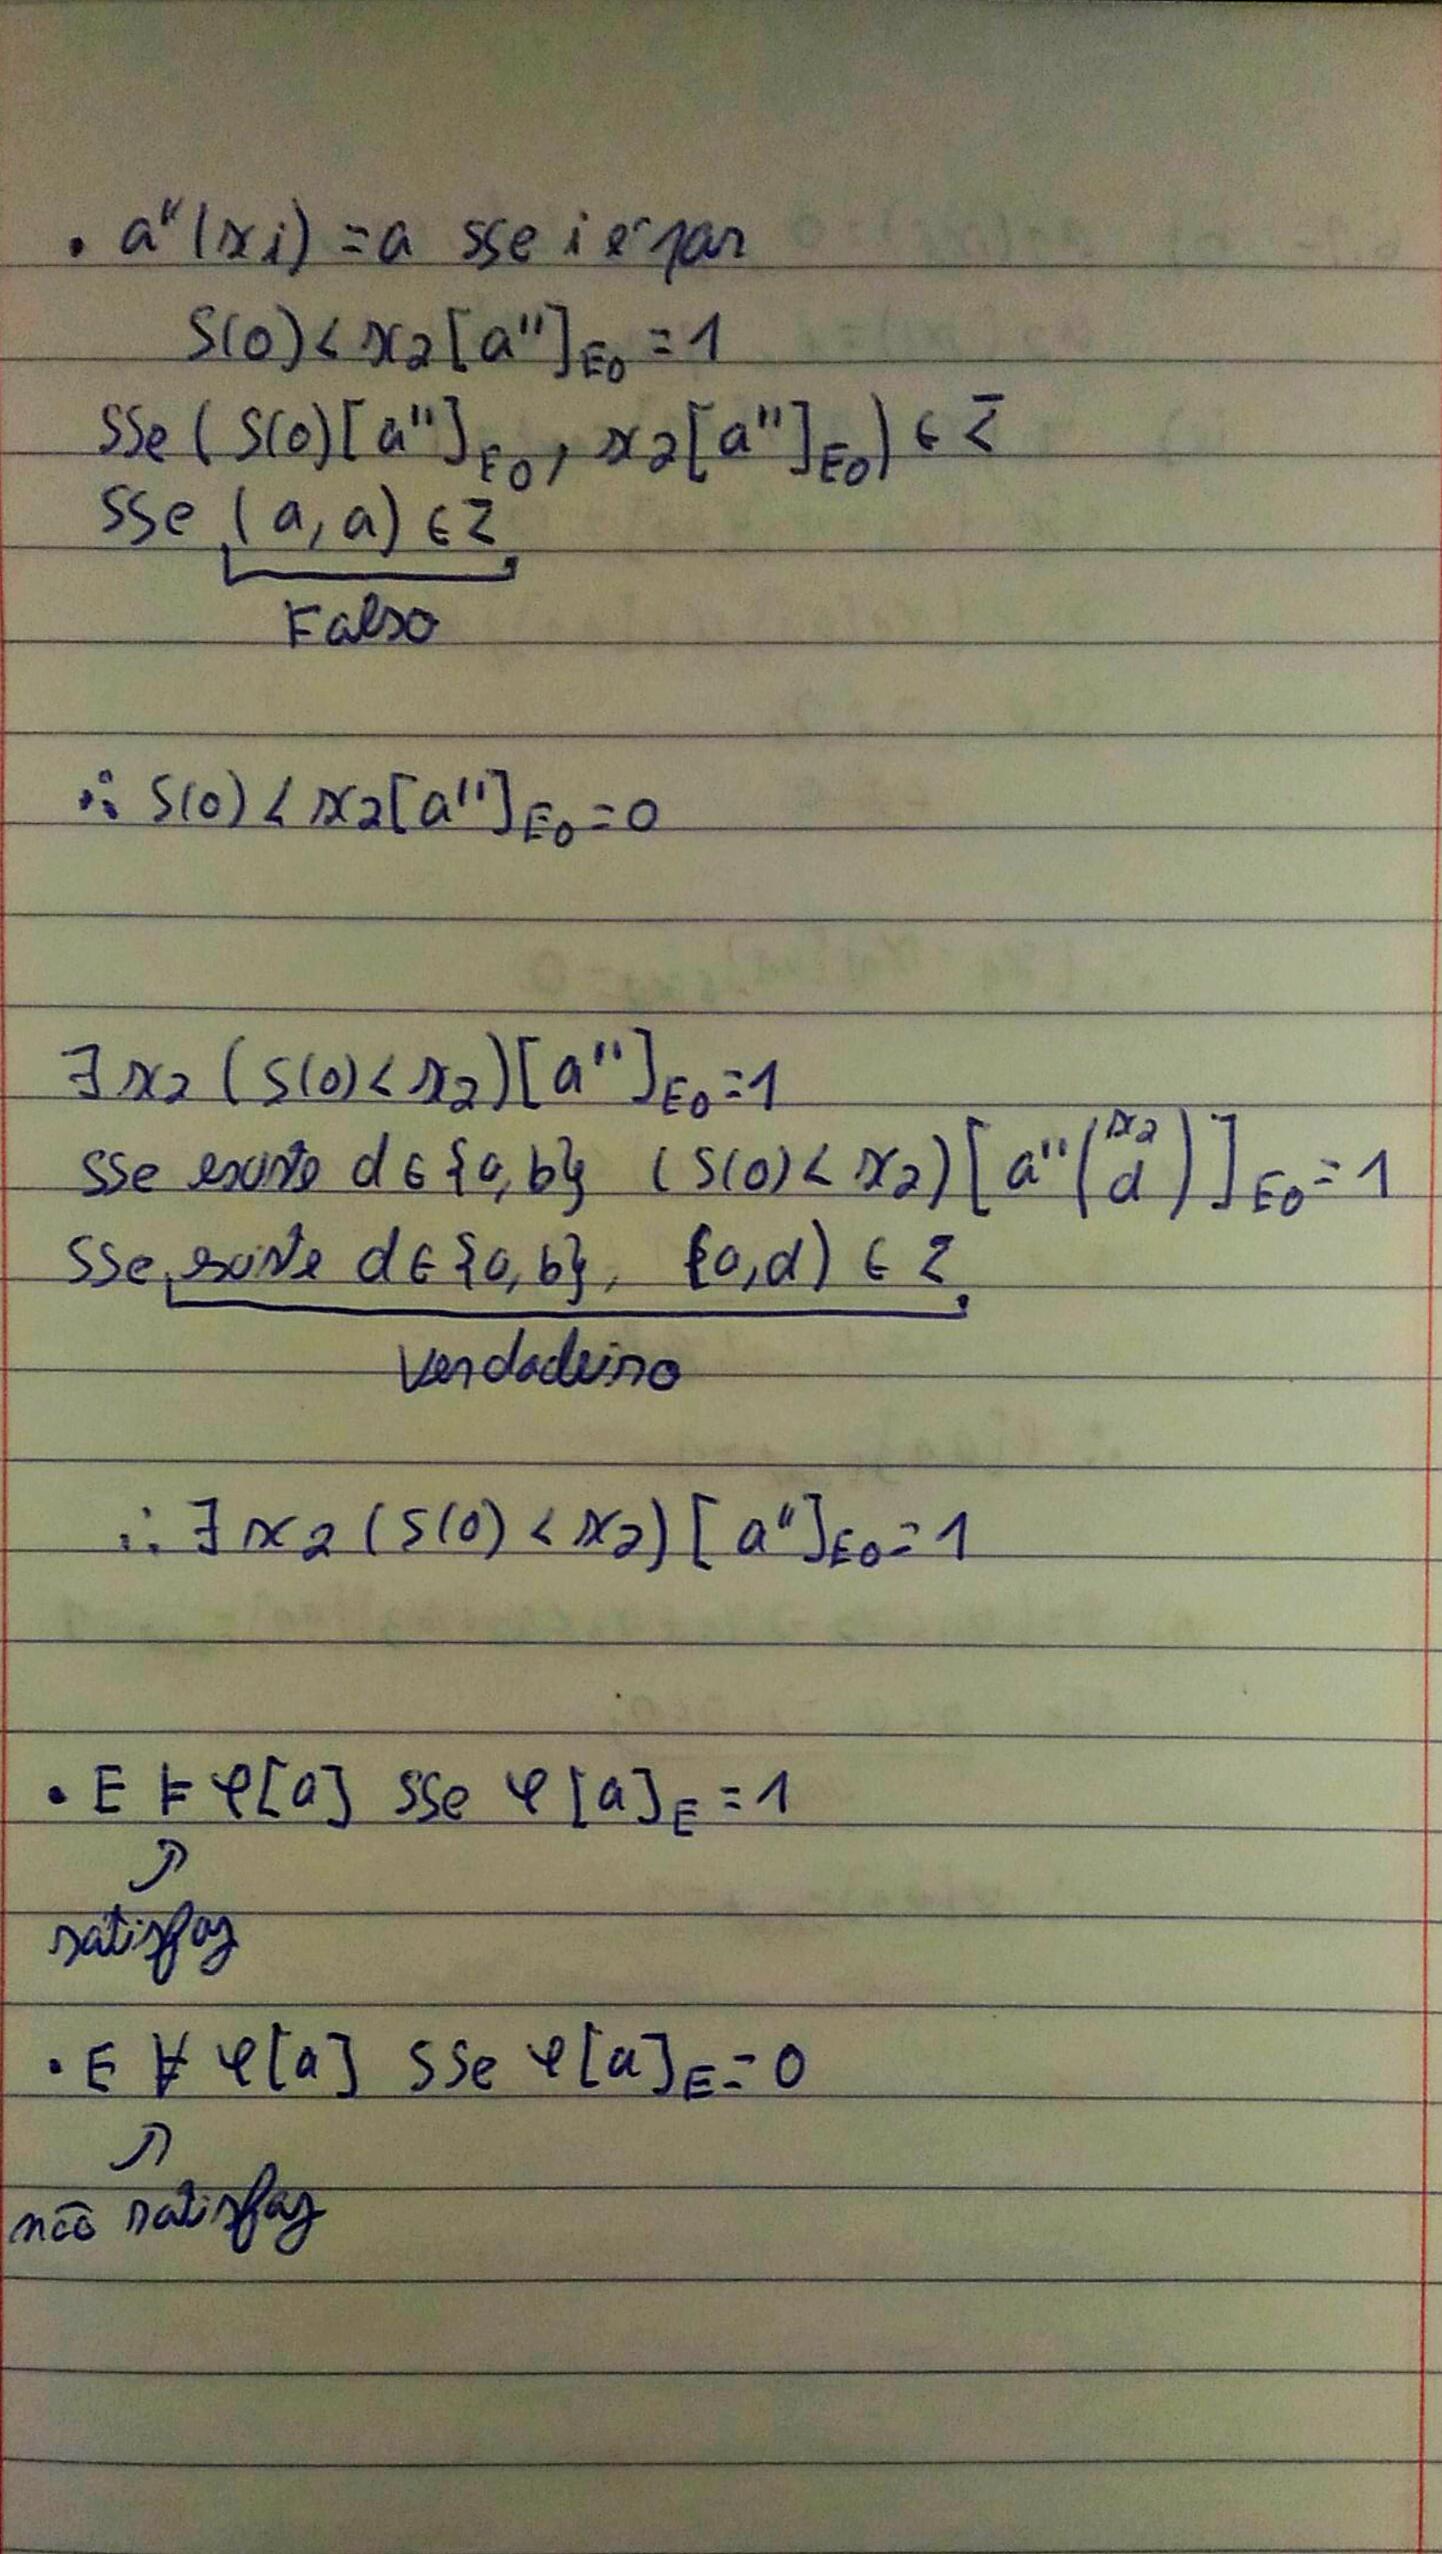 • a''(xi) = a sse i é par
S(0) < x2[a'']E0 = 1
sse (S(0)[a'']E0, x2[a'']E0) ∈ <̄
sse (a, a) ∈ <̄
Falso
∴ S(0) < x2[a'']E0 = 0
∃x2 (S(0) < x2)[a'']E0 = 1
sse existe d ∈ {a, b} (S(0) < x2)[a''(x2 d)]E0 = 1
sse existe d ∈ {a, b}, (a, d) ∈ <̄
Verdadeiro
∴ ∃x2 (S(0) < x2)[a'']E0 = 1
• E ⊨ φ[a] sse φ[a]E = 1
satisfaz
• E ⊭ φ[a] sse φ[a]E = 0
não satisfaz